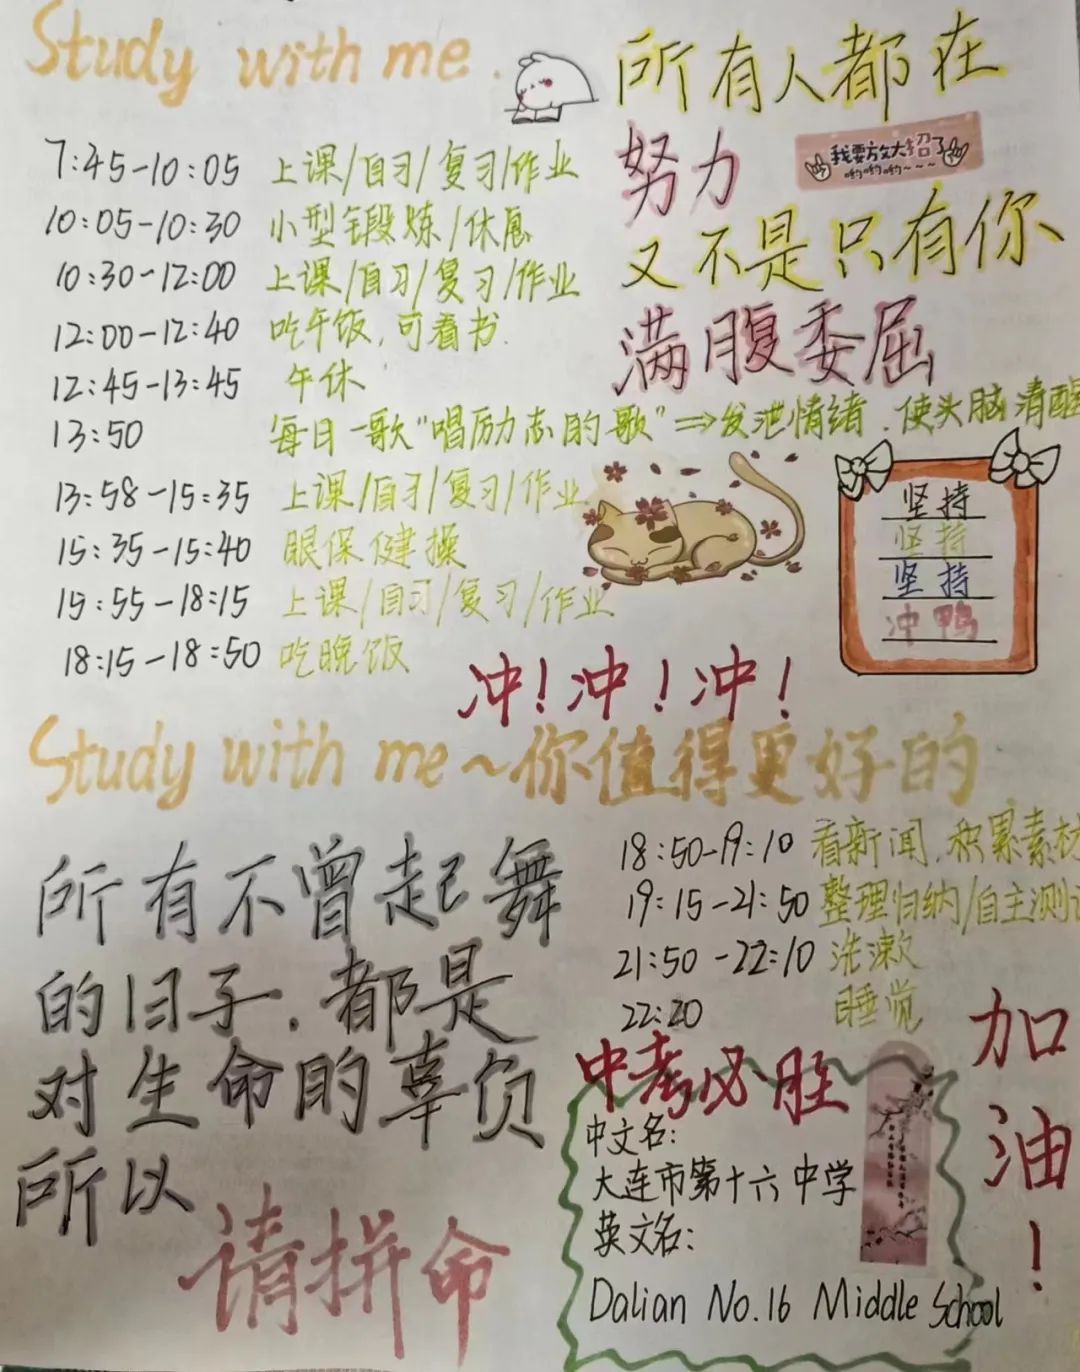 Study with me.
所有人都在
努力
我要放大招了
哟哟哟~~~
又不是只有你
满腹委屈
7:45-10:05 上课/自习/复习/作业
10:05-10:30 小型锻炼/休息
10:30-12:00 上课/自习/复习/作业
12:00-12:40 吃午饭,可看书.
12:45-13:45 午休
13:50 每日一歌"唱励志的歌"⇒发泄情绪.使头脑清醒
13:58-15:35 上课/自习/复习/作业
15:35-15:40 眼保健操
15:55-18:15 上课/自习/复习/作业
18:15-18:50 吃晚饭
坚持
坚持
坚持
冲鸭
冲!冲!冲!
Study with me~你值得更好的
所有不曾起舞
的日子.都是
对生命的辜负
所以
请拼命
18:50-19:10 看新闻.积累素材
19:15-21:50 整理归纳/自主测
21:50-22:10 洗漱
22:20 睡觉
加油!
中考必胜
中文名:
大连市第十六中学
英文名:
Dalian No.16 Middle School